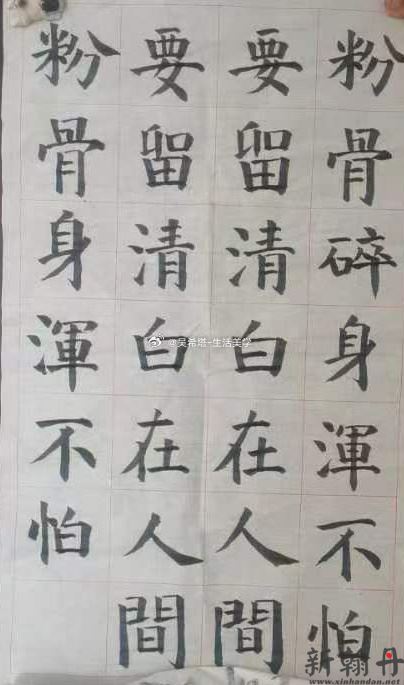 粉骨碎身渾不怕
要留清白在人間
要留清白在人間
粉骨身渾不怕
@吴希塔-生活美学
新翰丹
www.xinhandan.net